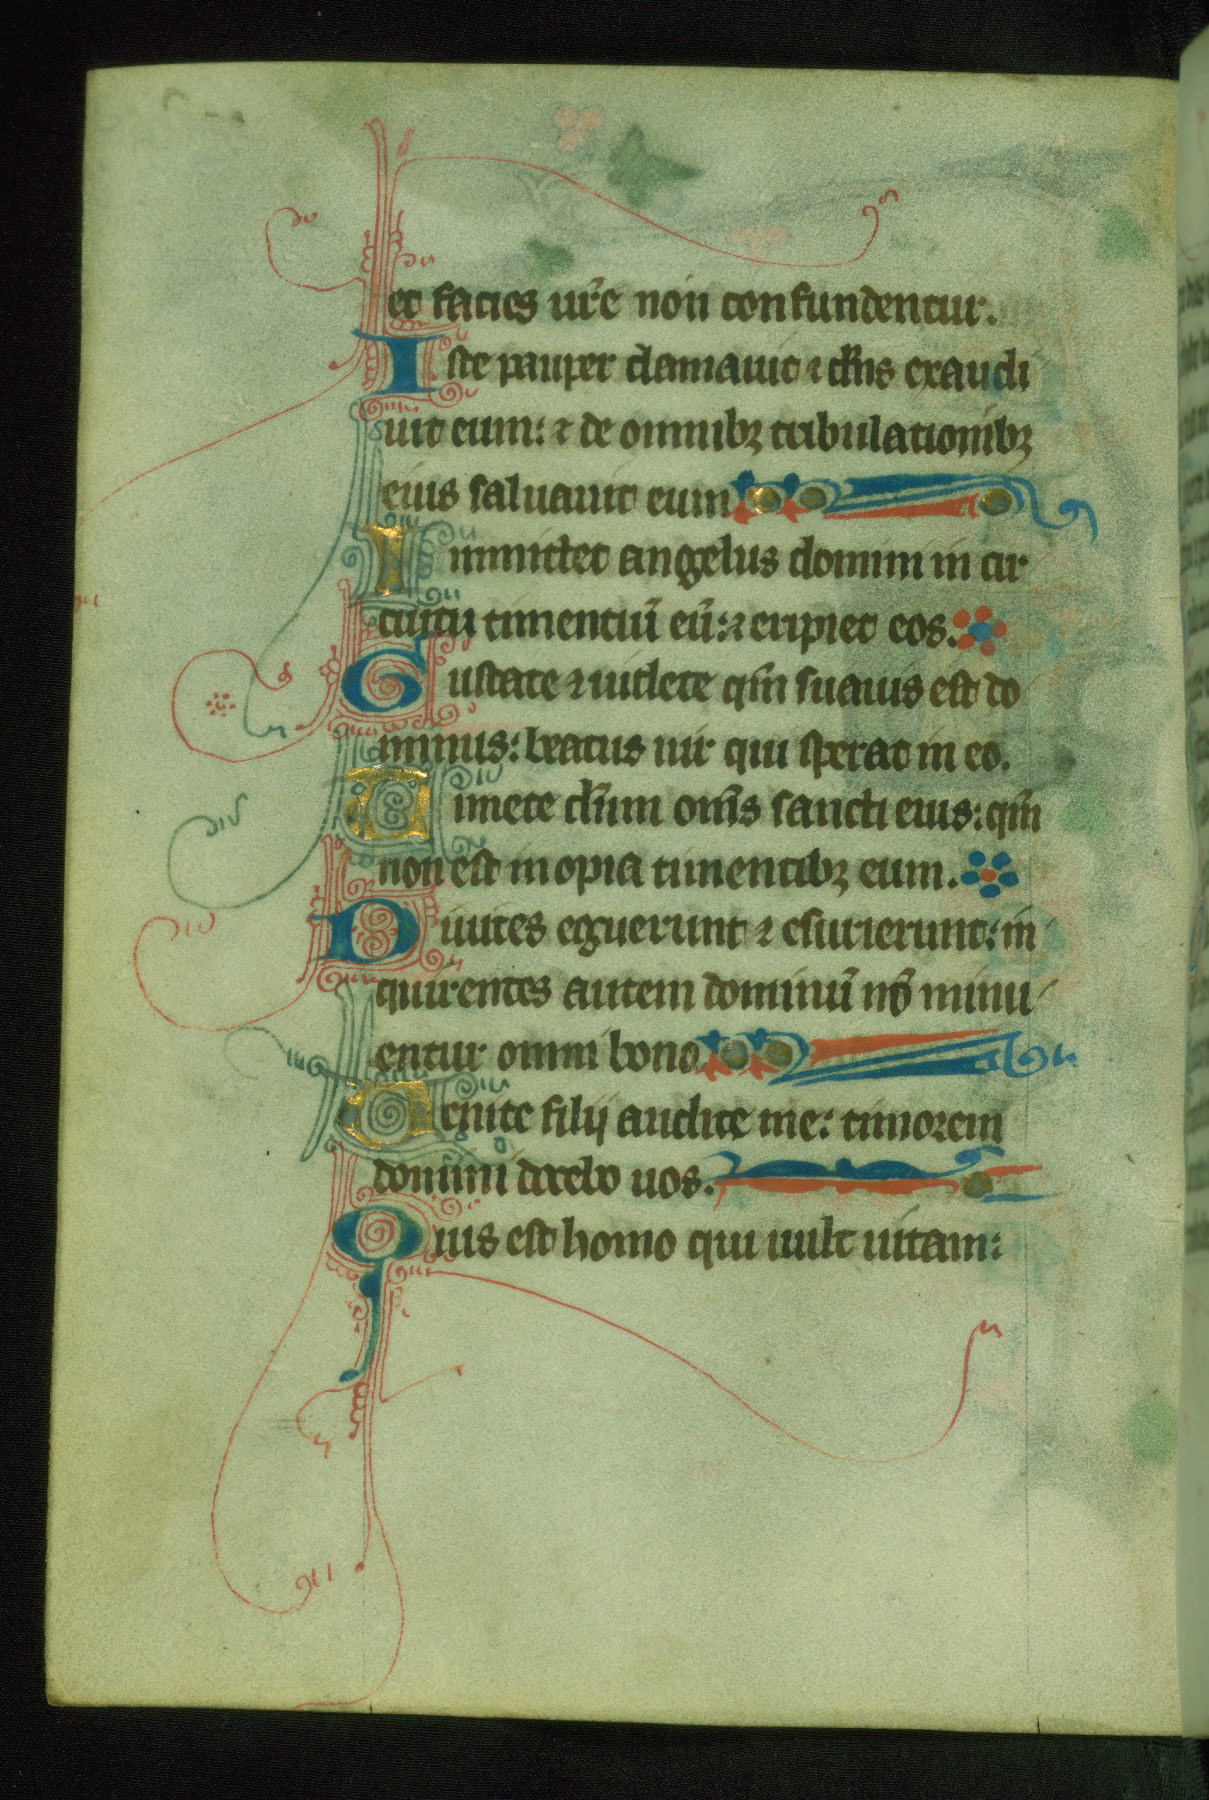 et facies ur̃e non confundentur.
Iste pauper clamauit ⁊ dñs exaudi
uit eum: ⁊ de omnibꝫ tribulationibꝫ
eius saluauit eum
Inmittet angelus domini in cir
cuitu timentiũ eũ: ⁊ eripiet eos.
Gustate ⁊ uidete qm̃ suauis est do
minus: beatus uir qui sperat in eo.
Timete dñm om̃s sancti eius: qm̃
non est inopia timentibꝫ eum.
Diuites eguerunt ⁊ esurierunt: in
quirentes autem dominũ nõ minu
entur omni bono
Uenite filij audite me: timorem
domini docebo uos.
Quis est homo qui uult uitam: